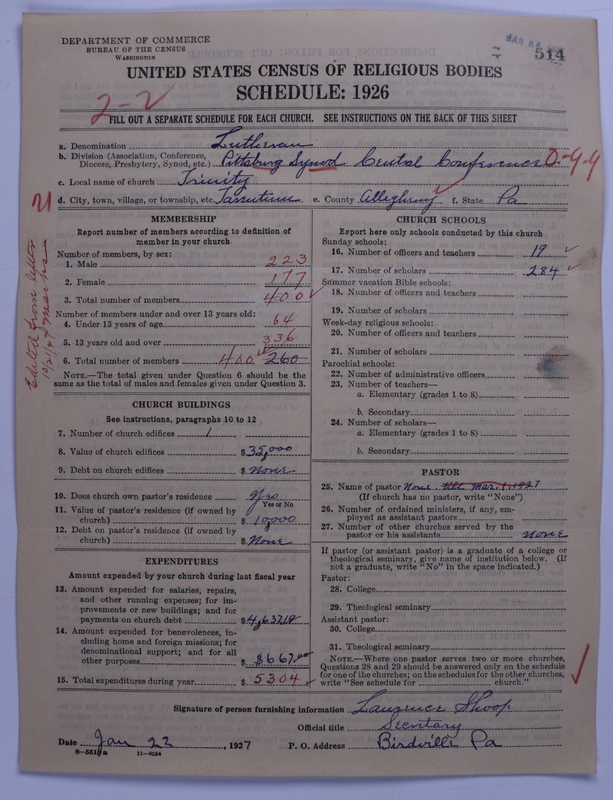 DEPARTMENT OF COMMERCE
BUREAU OF THE CENSUS
WASHINGTON
514
UNITED STATES CENSUS OF RELIGIOUS BODIES
SCHEDULE: 1926
2-2
FILL OUT A SEPARATE SCHEDULE FOR EACH CHURCH. SEE INSTRUCTIONS ON THE BACK OF THIS SHEET
a. Denomination Lutheran
b. Division (Association, Conference, Diocese, Presbytery, Synod, etc.) Pittsburg Synod Central Conference 0-9-9
c. Local name of church Trinity
d. City, town, village, or township, etc. Tarentum e. County Allegheny f. State Pa
21
Edited from letter
MEMBERSHIP
Report number of members according to definition of
member in your church
Number of members, by sex:
1. Male 223
2. Female 177
3. Total number of members 400
Number of members under and over 13 years old:
4. Under 13 years of age 64
5. 13 years old and over 336
6. Total number of members 400 260
NOTE.—The total given under Question 6 should be the
same as the total of males and females given under Question 3.
CHURCH BUILDINGS
See instructions, paragraphs 10 to 12
7. Number of church edifices 1
8. Value of church edifices $35,000
9. Debt on church edifices $None
10. Does church own pastor's residence Yes
Yes or No
11. Value of pastor's residence (if owned by
church) $10,000
12. Debt on pastor's residence (if owned by
church) $None
EXPENDITURES
Amount expended by your church during last fiscal year
13. Amount expended for salaries, repairs,
and other running expenses; for im-
provements or new buildings; and for
payments on church debt $4,637.10
14. Amount expended for benevolences, in-
cluding home and foreign missions; for
denominational support; and for all
other purposes $667.00
15. Total expenditures during year $5304
CHURCH SCHOOLS
Report here only schools conducted by this church
Sunday schools:
16. Number of officers and teachers 19
17. Number of scholars 284
Summer vacation Bible schools:
18. Number of officers and teachers
19. Number of scholars
Week-day religious schools:
20. Number of officers and teachers
21. Number of scholars
Parochial schools:
22. Number of administrative officers
23. Number of teachers—
a. Elementary (grades 1 to 8)
b. Secondary
24. Number of scholars—
a. Elementary (grades 1 to 8)
b. Secondary
PASTOR
25. Name of pastor None till Mar. 1, 1927
(If church has no pastor, write "None")
26. Number of ordained ministers, if any, em-
ployed as assistant pastors
27. Number of other churches served by the
pastor or his assistants None
If pastor (or assistant pastor) is a graduate of a college or
theological seminary, give name of institution below. (If
not a graduate, write "No" in the space indicated.)
Pastor:
28. College
29. Theological seminary
Assistant pastor:
30. College
31. Theological seminary
NOTE.—Where one pastor serves two or more churches,
Questions 28 and 29 should be answered only on the schedule
for one of the churches; on the schedules for the other churches,
write "See schedule for church."
Signature of person furnishing information Laurence Shoop
Official title Secretary
Date Jan 22, 1927 P. O. Address Birdville Pa